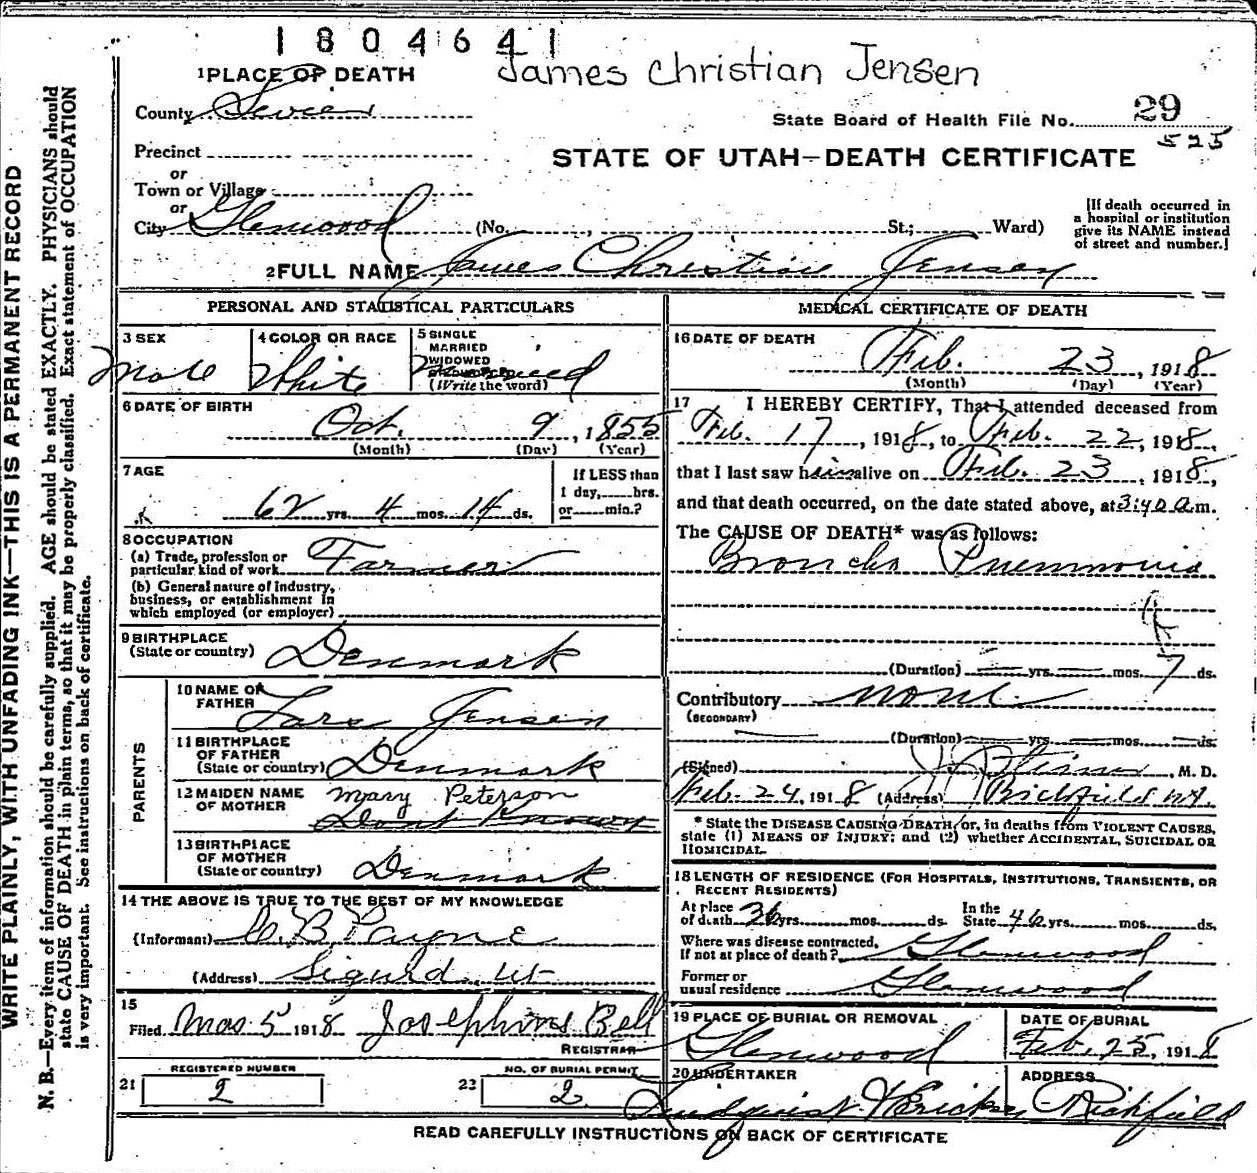 1804641
James Christian Jensen
1 PLACE OF DEATH
County Sevier
State Board of Health File No. 29
525
Precinct
or
Town or Village
or
City Glenwood (No. , St.; Ward)
STATE OF UTAH—DEATH CERTIFICATE
[If death occurred in a hospital or institution give its NAME instead of street and number.]
2 FULL NAME James Christian Jensen
PERSONAL AND STATISTICAL PARTICULARS
3 SEX Male
4 COLOR OR RACE White
5 SINGLE
MARRIED
WIDOWED
(Write the word)
6 DATE OF BIRTH
Oct. 9, 1855
(Month) (Day) (Year)
7 AGE
62 yrs. 4 mos. 14 ds.
If LESS than
1 day, hrs.
or min.?
8 OCCUPATION
(a) Trade, profession or
particular kind of work Farmer
(b) General nature of industry,
business, or establishment in
which employed (or employer)
9 BIRTHPLACE
(State or country) Denmark
PARENTS
10 NAME OF
FATHER Lars Jensen
11 BIRTHPLACE
OF FATHER
(State or country) Denmark
12 MAIDEN NAME
OF MOTHER Mary Peterson
Dont Know
13 BIRTHPLACE
OF MOTHER
(State or country) Denmark
14 THE ABOVE IS TRUE TO THE BEST OF MY KNOWLEDGE
(Informant) B Payne
(Address) Sigurd, Ut
15
Filed Mar 5 1918 Josephine Bell
REGISTRAR
REGISTERED NUMBER
21 2
NO. OF BURIAL PERMIT
22 2
MEDICAL CERTIFICATE OF DEATH
16 DATE OF DEATH
Feb. 23, 1918
(Month) (Day) (Year)
17 I HEREBY CERTIFY, That I attended deceased from
Feb. 17, 1918, to Feb. 22, 1918,
that I last saw him alive on Feb. 23, 1918,
and that death occurred, on the date stated above, at 3:40 a.m.
The CAUSE OF DEATH* was as follows:
Broncho Pneumonia
(Duration) yrs. mos. 7 ds.
Contributory none
(SECONDARY)
(Duration) yrs. mos. ds.
(Signed) , M. D.
Feb. 24, 1918 (Address) Richfield Ut.
* State the DISEASE CAUSING DEATH, or, in deaths from VIOLENT CAUSES,
state (1) MEANS OF INJURY; and (2) whether ACCIDENTAL, SUICIDAL OR
HOMICIDAL.
18 LENGTH OF RESIDENCE (FOR HOSPITALS, INSTITUTIONS, TRANSIENTS, OR
RECENT RESIDENTS)
At place
of death 36 yrs. mos. ds. In the
State 46 yrs. mos. ds.
Where was disease contracted,
If not at place of death? Glenwood
Former or
usual residence Glenwood
19 PLACE OF BURIAL OR REMOVAL
Glenwood
DATE OF BURIAL
Feb. 25, 1918
20 UNDERTAKER
Lundquist &
ADDRESS
Richfield
READ CAREFULLY INSTRUCTIONS ON BACK OF CERTIFICATE
WRITE PLAINLY, WITH UNFADING INK—THIS IS A PERMANENT RECORD
N. B.—Every item of information should be carefully supplied. AGE should be stated EXACTLY. PHYSICIANS should
state CAUSE OF DEATH in plain terms, so that it may be properly classified. Exact statement of OCCUPATION
is very important. See instructions on back of certificate.